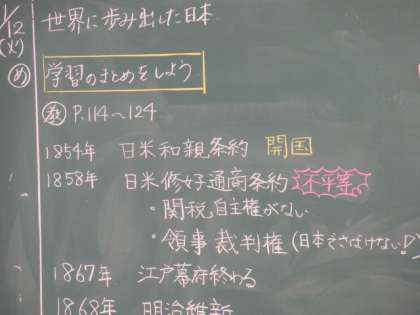 1/12 世界に歩み出した日本
(火)
め 学習のまとめをしよう
教 P.114〜124
1854年 日米和親条約 開国
1858年 日米修好通商条約 不平等
・関税自主権がない
・領事裁判権(日本でさばけない!)
1867年 江戸幕府終わる
1868年 明治維新